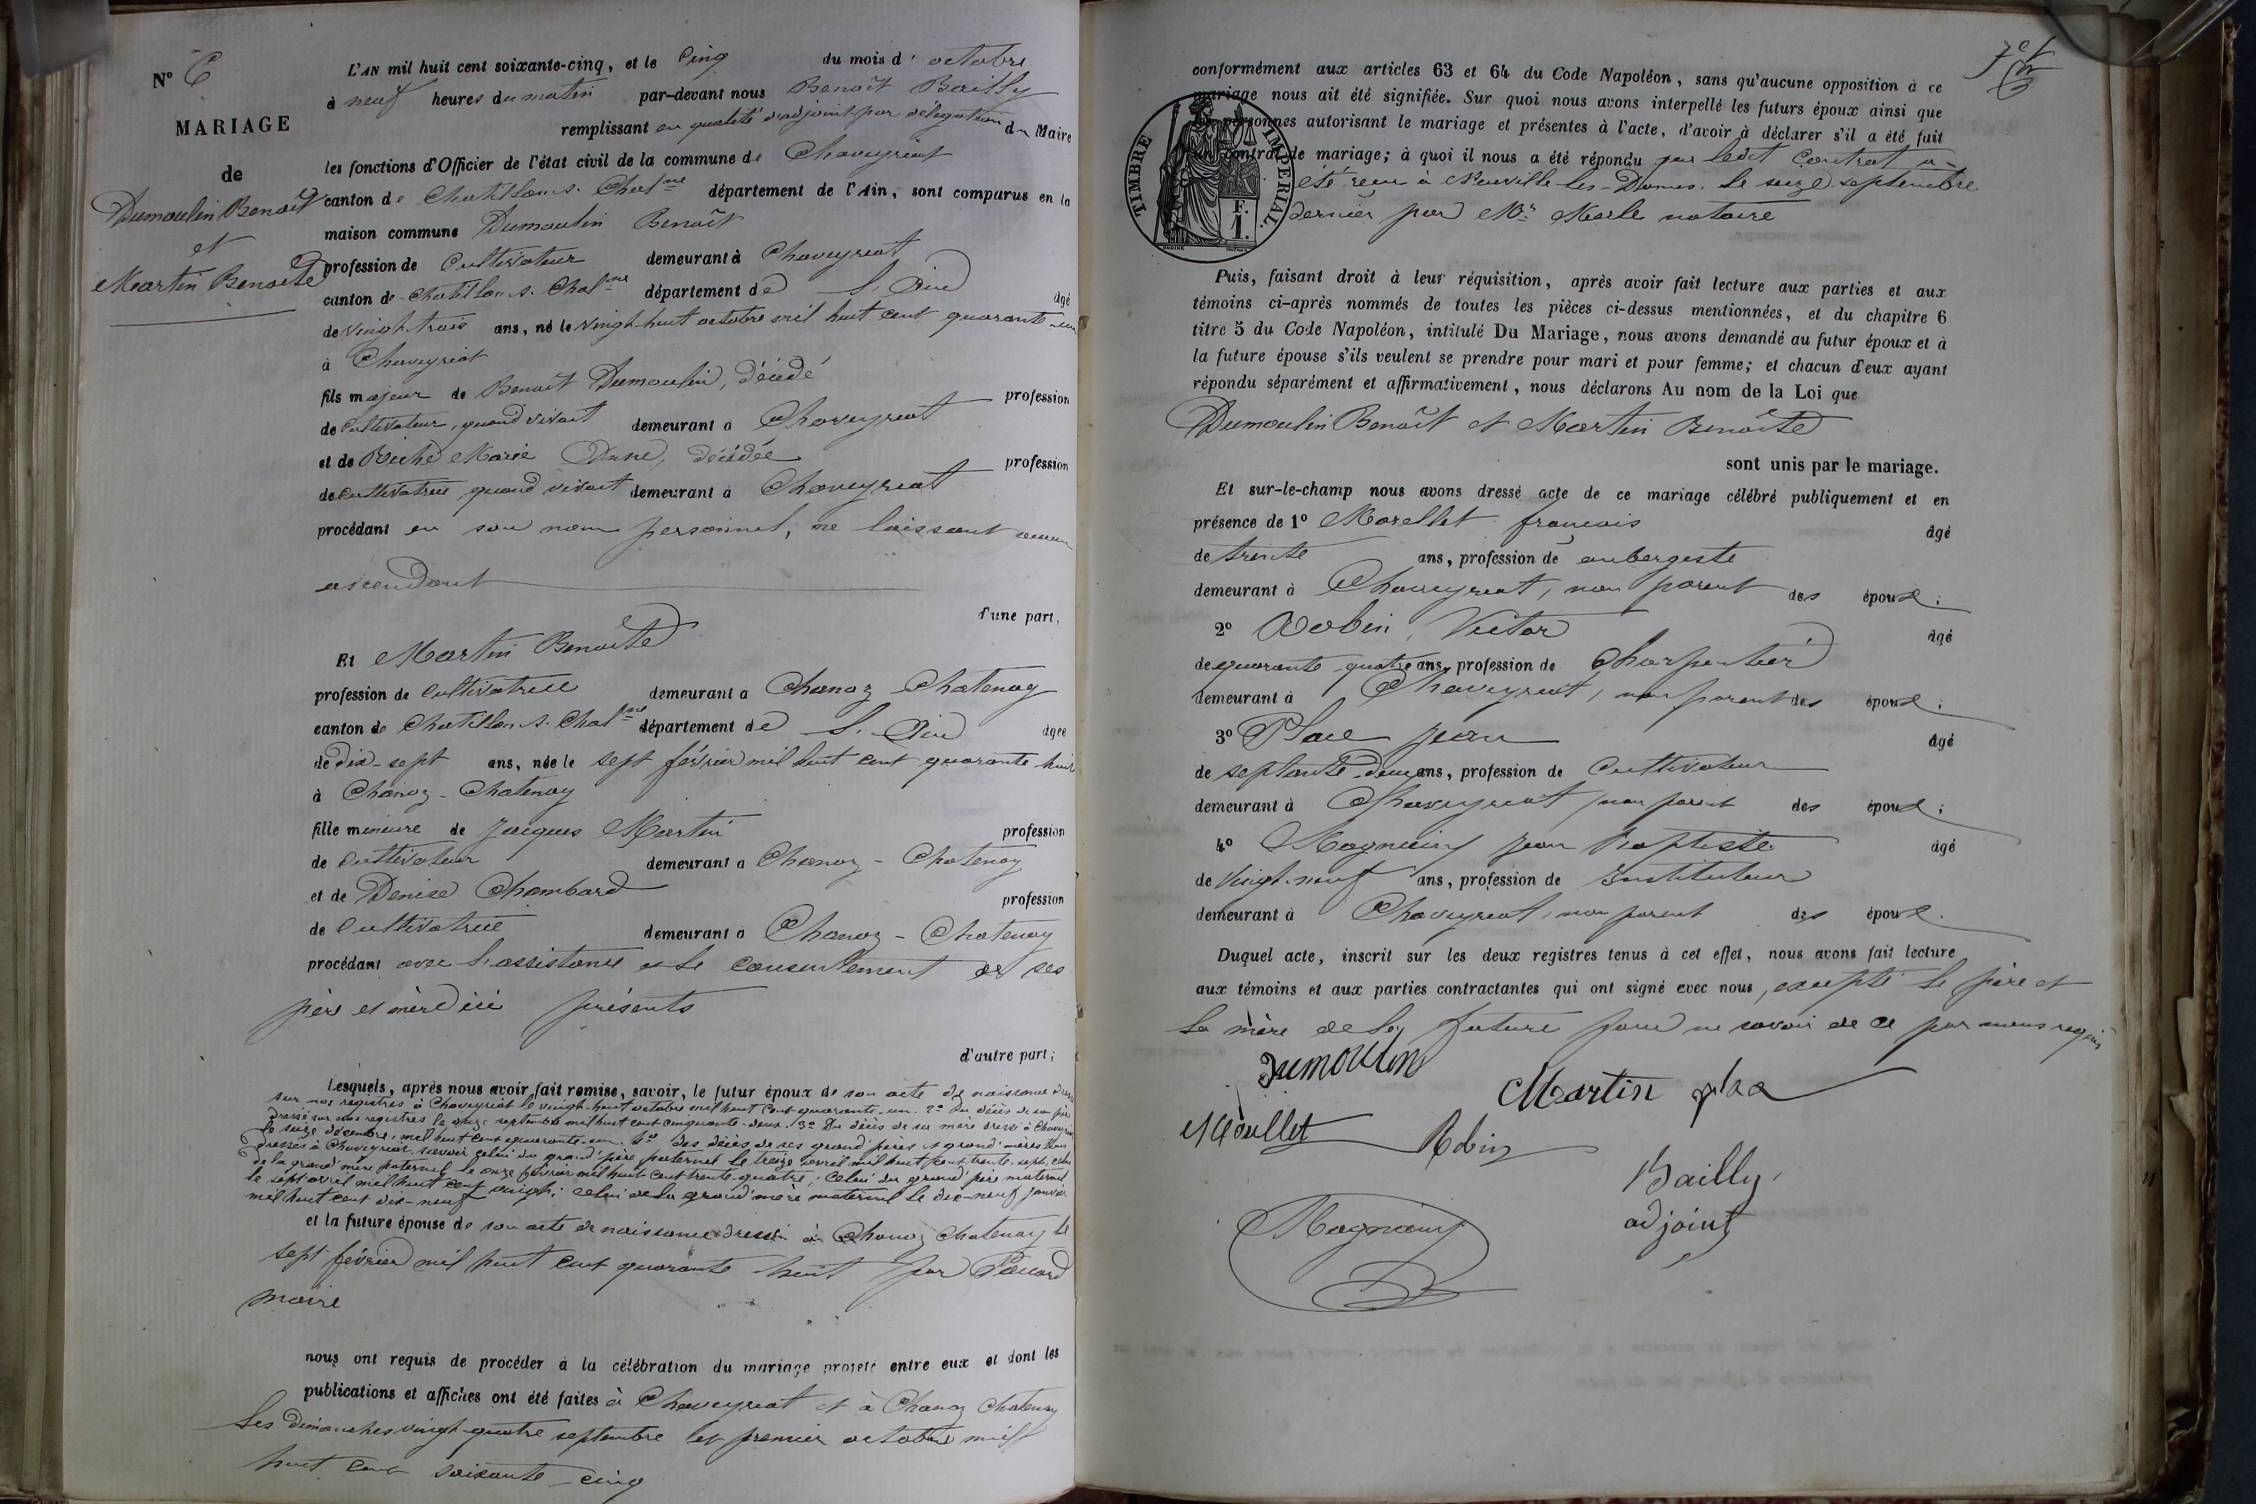 N° 6
MARIAGE
de
Dumoulin Benoît
et
Martin Benoîte
L'AN mil huit cent soixante-cinq, et le Cinq du mois d'octobre
à neuf heures du matin par-devant nous Benoît Bailly
remplissant en qualité d'adjoint par délégation du Maire
les fonctions d'Officier de l'état civil de la commune de Chaveyriat
canton de Chatillon s. Chal.ne département de l'Ain, sont comparus en la
maison commune Dumoulin Benoît
profession de Cultivateur demeurant à Chaveyriat
canton de Chatillon s. Chal.ne département de L'Ain âgé
de vingt-trois ans, né le vingt-huit octobre mil huit cent quarante-un
à Chaveyriat
fils majeur de Benoît Dumoulin, décédé profession
de Cultivateur, quand vivait demeurant à Chaveyriat
et de Marie décédée profession
de cultivatrice, quand vivait demeurant à Chaveyriat
procédant en son nom personnel, ne laissant aucun
ascendant
d'une part,
Et Martin Benoîte
profession de Cultivatrice demeurant à Chanoz-Chatenay
canton de Chatillon s. Chal.ne département de L'Ain âgée
de dix-sept ans, née le sept février mil huit cent quarante-huit
à Chanoz-Chatenay
fille mineure de Jacques Martin profession
de Cultivateur demeurant à Chanoz-Chatenay
et de Denise Chambard profession
de Cultivatrice demeurant à Chanoz-Chatenay
procédant avec l'assistance et le consentement de ses
père et mère ici présents
d'autre part;
Lesquels, après nous avoir fait remise, savoir, le futur époux de son acte de naissance dressé
sur nos registres à Chaveyriat le vingt-huit octobre mil huit cent quarante-un. 2° Du décès de son père
dressé sur nos registres le septembre mil huit cent cinquante-deux. 3° Du décès de sa mère dressé à Chaveyriat
le seize décembre, mil huit cent quarante-un. 4° des décès de ses grand'pères et grand'mères
dressés à Chaveyriat, savoir celui du grand'père paternel le treize avril mil huit cent trente-sept; celui
de la grand'mère paternel le onze février mil huit cent trente-quatre; celui du grand'père maternel
le sept avril mil huit cent vingt; celui de la grand'mère maternel le dix-neuf janvier
mil huit cent dix-neuf
et la future épouse de son acte de naissance dressé à Chanoz Chatenay le
sept février mil huit cent quarante huit par
maire
nous ont requis de procéder à la célébration du mariage projeté entre eux et dont les
publications et affiches ont été faites à Chaveyriat et à Chanoz Chatenay
les dimanches vingt-quatre septembre et premier octobre mil
huit cent soixante-cinq
conformément aux articles 63 et 64 du Code Napoléon, sans qu'aucune opposition à ce
mariage nous ait été signifiée. Sur quoi nous avons interpellé les futurs époux ainsi que
les personnes autorisant le mariage et présentes à l'acte, d'avoir à déclarer s'il a été fait
un contrat de mariage; à quoi il nous a été répondu que ledit Contrat a
été reçu à Neuville-les-Dames, le seize septembre
dernier par Mr. Merle notaire
TIMBRE IMPÉRIAL.
F.
1.
Puis, faisant droit à leur réquisition, après avoir fait lecture aux parties et aux
témoins ci-après nommés de toutes les pièces ci-dessus mentionnées, et du chapitre 6
titre 5 du Code Napoléon, intitulé Du Mariage, nous avons demandé au futur époux et à
la future épouse s'ils veulent se prendre pour mari et pour femme; et chacun d'eux ayant
répondu séparément et affirmativement, nous déclarons Au nom de la Loi que
Dumoulin Benoît et Martin Benoîte
sont unis par le mariage.
Et sur-le-champ nous avons dressé acte de ce mariage célébré publiquement et en
présence de 1° Morellet françois âgé
de trente ans, profession de aubergiste
demeurant à Chaveyriat, non parent des époux;
2° Robin, Victor âgé
de quarante-quatre ans, profession de Charpentier
demeurant à Chaveyriat, non parent des époux;
3° Place jean âgé
de septante-deux ans, profession de Cultivateur
demeurant à Chaveyriat, non parent des époux;
4° Magnany jean Baptiste âgé
de vingt-neuf ans, profession de Instituteur
demeurant à Chaveyriat, non parent des époux.
Duquel acte, inscrit sur les deux registres tenus à cet effet, nous avons fait lecture
aux témoins et aux parties contractantes qui ont signé avec nous, excepté le père et
la mère de la future pour ne savoir de ce par nous requis
Dumoulin
Martin
Morellet
Robin
Bailly,
adjoint
Magnany